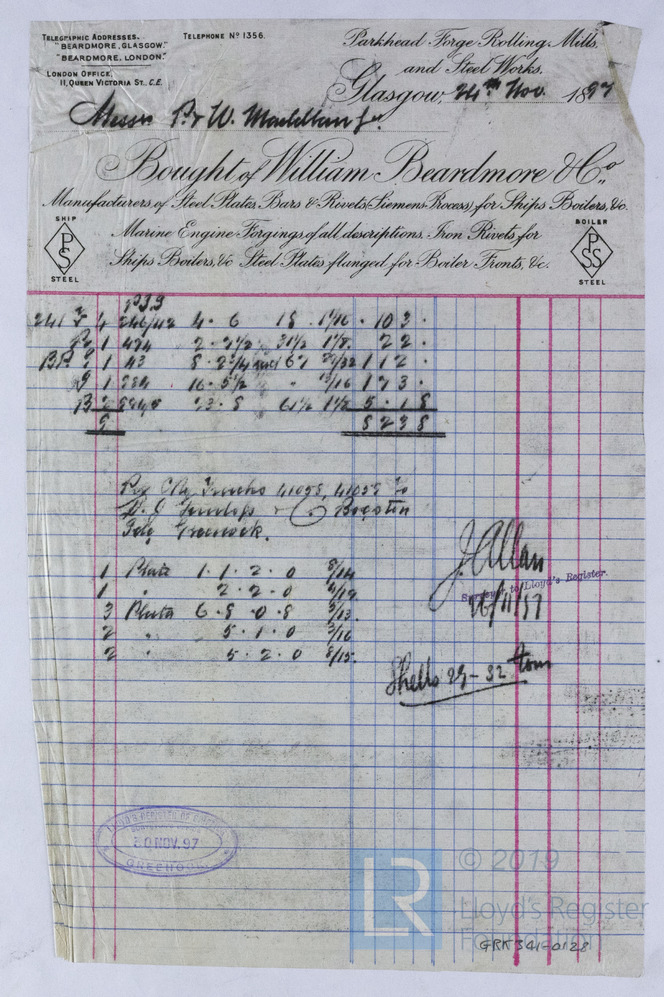 TELEGRAPHIC ADDRESSES.
"BEARDMORE, GLASGOW."
"BEARDMORE, LONDON."
LONDON OFFICE,
11, QUEEN VICTORIA ST., E.C.
TELEPHONE No 1356.
Parkhead Forge Rolling Mills,
and Steel Works.
Glasgow, 24th Nov. 1897
Messrs P & W. Maclellan
Bought of William Beardmore & Co.,
Manufacturers of Steel Plates Bars & Rivets (Siemens Process) for Ships Boilers, &c.
Marine Engine Forgings of all descriptions, Iron Rivets for
Ships Boilers, &c Steel Plates flanged for Boiler Fronts, &c.
SHIP
PS
STEEL
BOILER
PSS
STEEL
4 246/42 4 . 6 18 1 1/16 . 10 3 .
1 474 31½ 1⅛ . 2 2 .
1 43 67 1 1 2 .
1 16 . 5½ " 13/16 1 7 3 .
2 23 . 8 61½ 1⅛ 5 . 1 8
9 8 2 3 8
Greenock.
1 Plate 1 . 1 . 2 . 0
1 " 2 . 2 . 0
3 Plates 6 . 8 . 0 . 8
2 " 5 . 1 . 0
2 " 5 . 2 . 0 8/15.
J Allan
Surveyor to Lloyd's Register.
26/11/97
Shells 29 - 32 tons
LLOYD'S REGISTER OF
NOV. 97
GREENOCK
LR
© 2019
Lloyd's Register
Foundation
GRK 341-0128